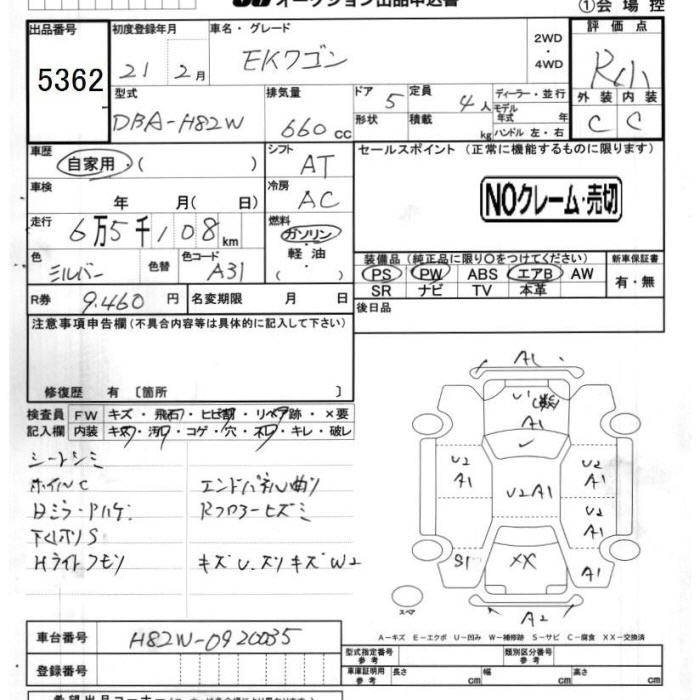 オークション出品申込書
①会場控
出品番号
5362
初度登録年月
21 2月
車名・グレード
EKワゴン
2WD
・
4WD
評価点
R小
外装 内装
C C
型式
DBA-H82W
排気量
660 cc
ドア 5
形状
定員 4人
積載 kg
ディーラー・並行
モデル年式 年
ハンドル 左・右
車歴
自家用・( )
シフト
AT
車検
年 月( 日)
冷房
AC
走行
6万5千108 km
燃料
ガソリン・
軽油・
( )
色
シルバー
色替
色コード
A31
R券 9.460 円
名変期限 月 日
セールスポイント (正常に機能するものに限ります)
NOクレーム・売切
装備品(純正品に限り○をつけてください)
新車保証書
PS PW ABS エアB AW
SR ナビ TV 本革
有・無
後日品
注意事項申告欄(不具合内容等は具体的に記入して下さい)
修復歴 有〔箇所 〕
検査員 FW キズ・飛石・ヒビ割・リペア跡・×要
記入欄 内装 キズ・汚れ・コゲ・穴・ネジ・キレ・破レ
シートシミ
ホイルC
エンドパネル曲り
Rフロアーヒズミ
下廻りS
Hライトクモリ
キズU.スリキズW2
A1
U1
A1
U2
A1
U2A1
U2
A1
U2
A1
S1
XX
A1
A2
スペア
A-キズ E-エクボ U-凹み W-補修跡 S-サビ C-腐食 XX-交換済
車台番号 H82W-0920035
登録番号
型式指定番号
参考
類別区分番号
参考
車庫証明用
参考
長さ cm
幅 cm
高さ cm